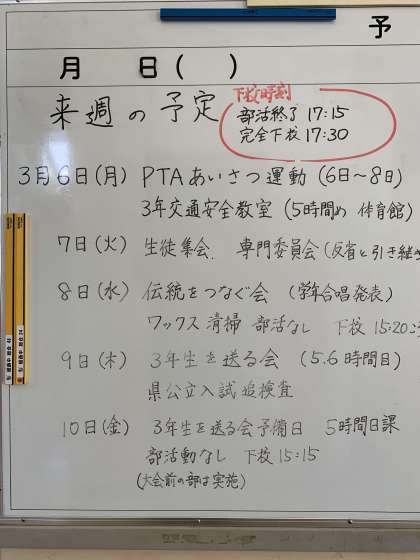 予
月 日( )
来週の予定
下校時刻
部活終了 17:15
完全下校 17:30
3月6日(月) PTAあいさつ運動 (6日～8日)
3年交通安全教室 (5時間め 体育館)
7日(火) 生徒集会. 専門委員会(反省と引き継ぎ
8日(水) 伝統をつなぐ会 (学年合唱発表)
ワックス清掃 部活なし 下校 15:20ごろ
9日(木) 3年生を送る会 (5.6時間目)
県公立入試追検査
10日(金) 3年生を送る会予備日 5時間日課
部活動なし 下校 15:15
(大会前の部は実施)